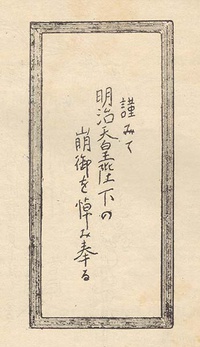 謹みて
明治天皇陛下の
崩御を悼み奉る